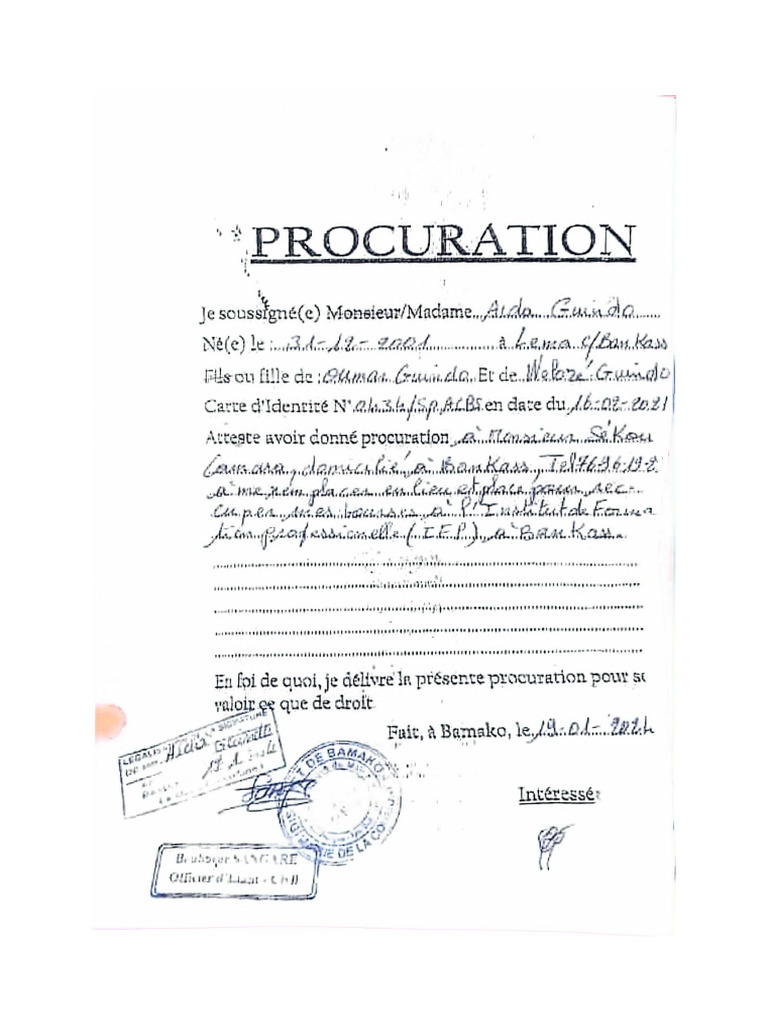 PROCURATION
Je soussigné(e) Monsieur/Madame Aïda Guindo
Né(e) le : 31-12-2001 à Lema c/Bankass
Fils ou fille de : Oumar Guindo Et de Welaré Guindo
Carte d'Identité N° 0434/Sp.ACBS en date du 16-02-2021
Atteste avoir donné procuration à Monsieur Sékou
Camara, domicilié à Bankass, Tel 76 96 19 8
à me remplacer en lieu et place pour réc-
upérer mes bourses à l'Institut de Forma
tion professionelle (I.F.P), à Bankass.
En foi de quoi, je délivre la présente procuration pour se
valoir ce que de droit
Fait, à Bamako, le 19-01-2024
LEGALIS SIGNATURE
DE Mme Aïda
DE BAMAKO
Intéressé:
DE LA CO
Boubacar SANGARE
Officier d'Etat - Civil